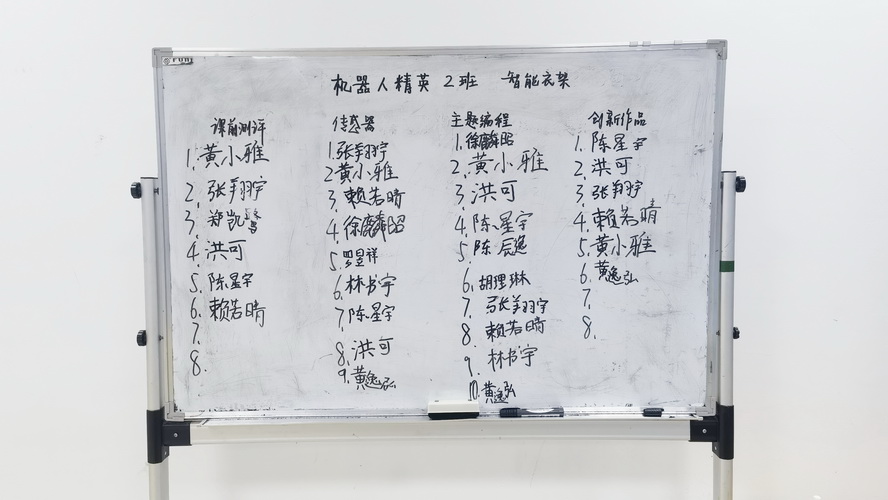 机器人精英 2班 智能衣架
课前测评
1. 黄小雅
2. 张翔宇
3. 郑凯
4. 洪可
5. 陈星宇
6. 赖若晴
7.
8.
传感器
1. 张翔宇
2 黄小雅
3. 赖若晴
4. 徐麟昭
5. 罗昱祥
6. 林书宇
7. 陈星宇
8. 洪可
9. 黄逸弘
主题编程
1. 徐麟昭
2. 黄小雅
3. 洪可
4. 陈星宇
5. 陈辰逸
6. 胡理琳
7. 张翔宇
8. 赖若晴
9. 林书宇
10. 黄逸弘
创新作品
1. 陈星宇
2. 洪可
3. 张翔宇
4. 赖若晴
5. 黄小雅
6. 黄逸弘
7.
8.